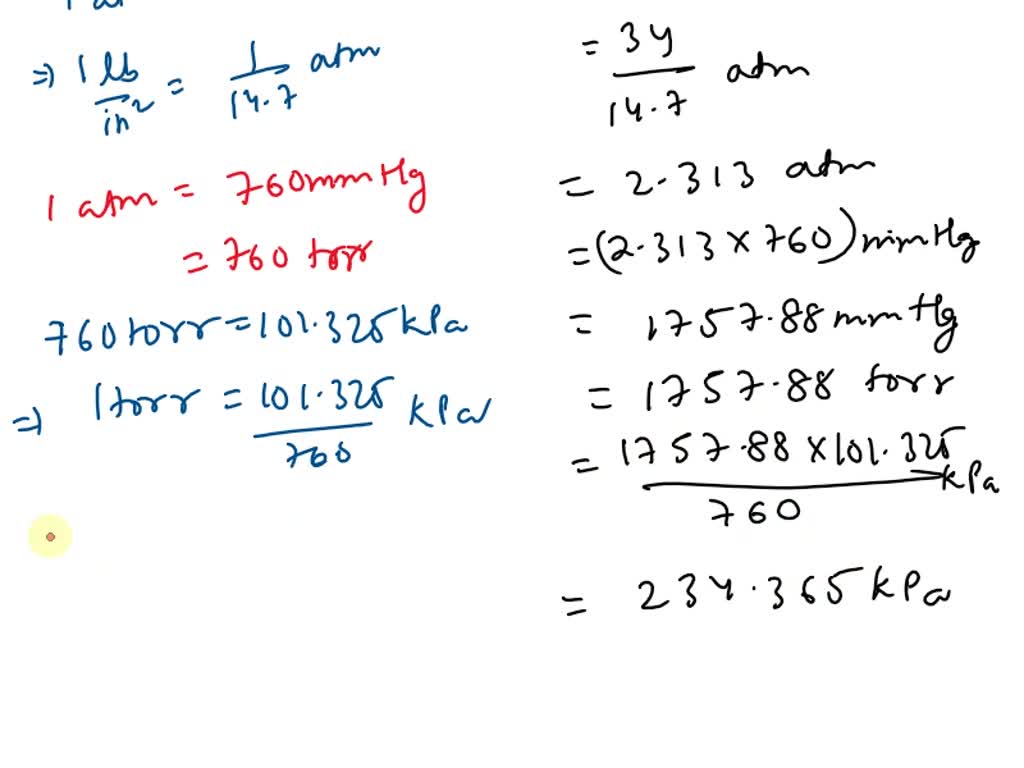 ⇒ 1 lb/in² = 1/14.7 atm
1 atm = 760 mmHg
= 760 torr
760 torr = 101.325 kPa
⇒ 1 torr = 101.325/760 kPa
= 34/14.7 atm
= 2.313 atm
= (2.313 × 760) mmHg
= 1757.88 mmHg
= 1757.88 torr
= 1757.88 × 101.325/760 kPa
= 234.365 kPa